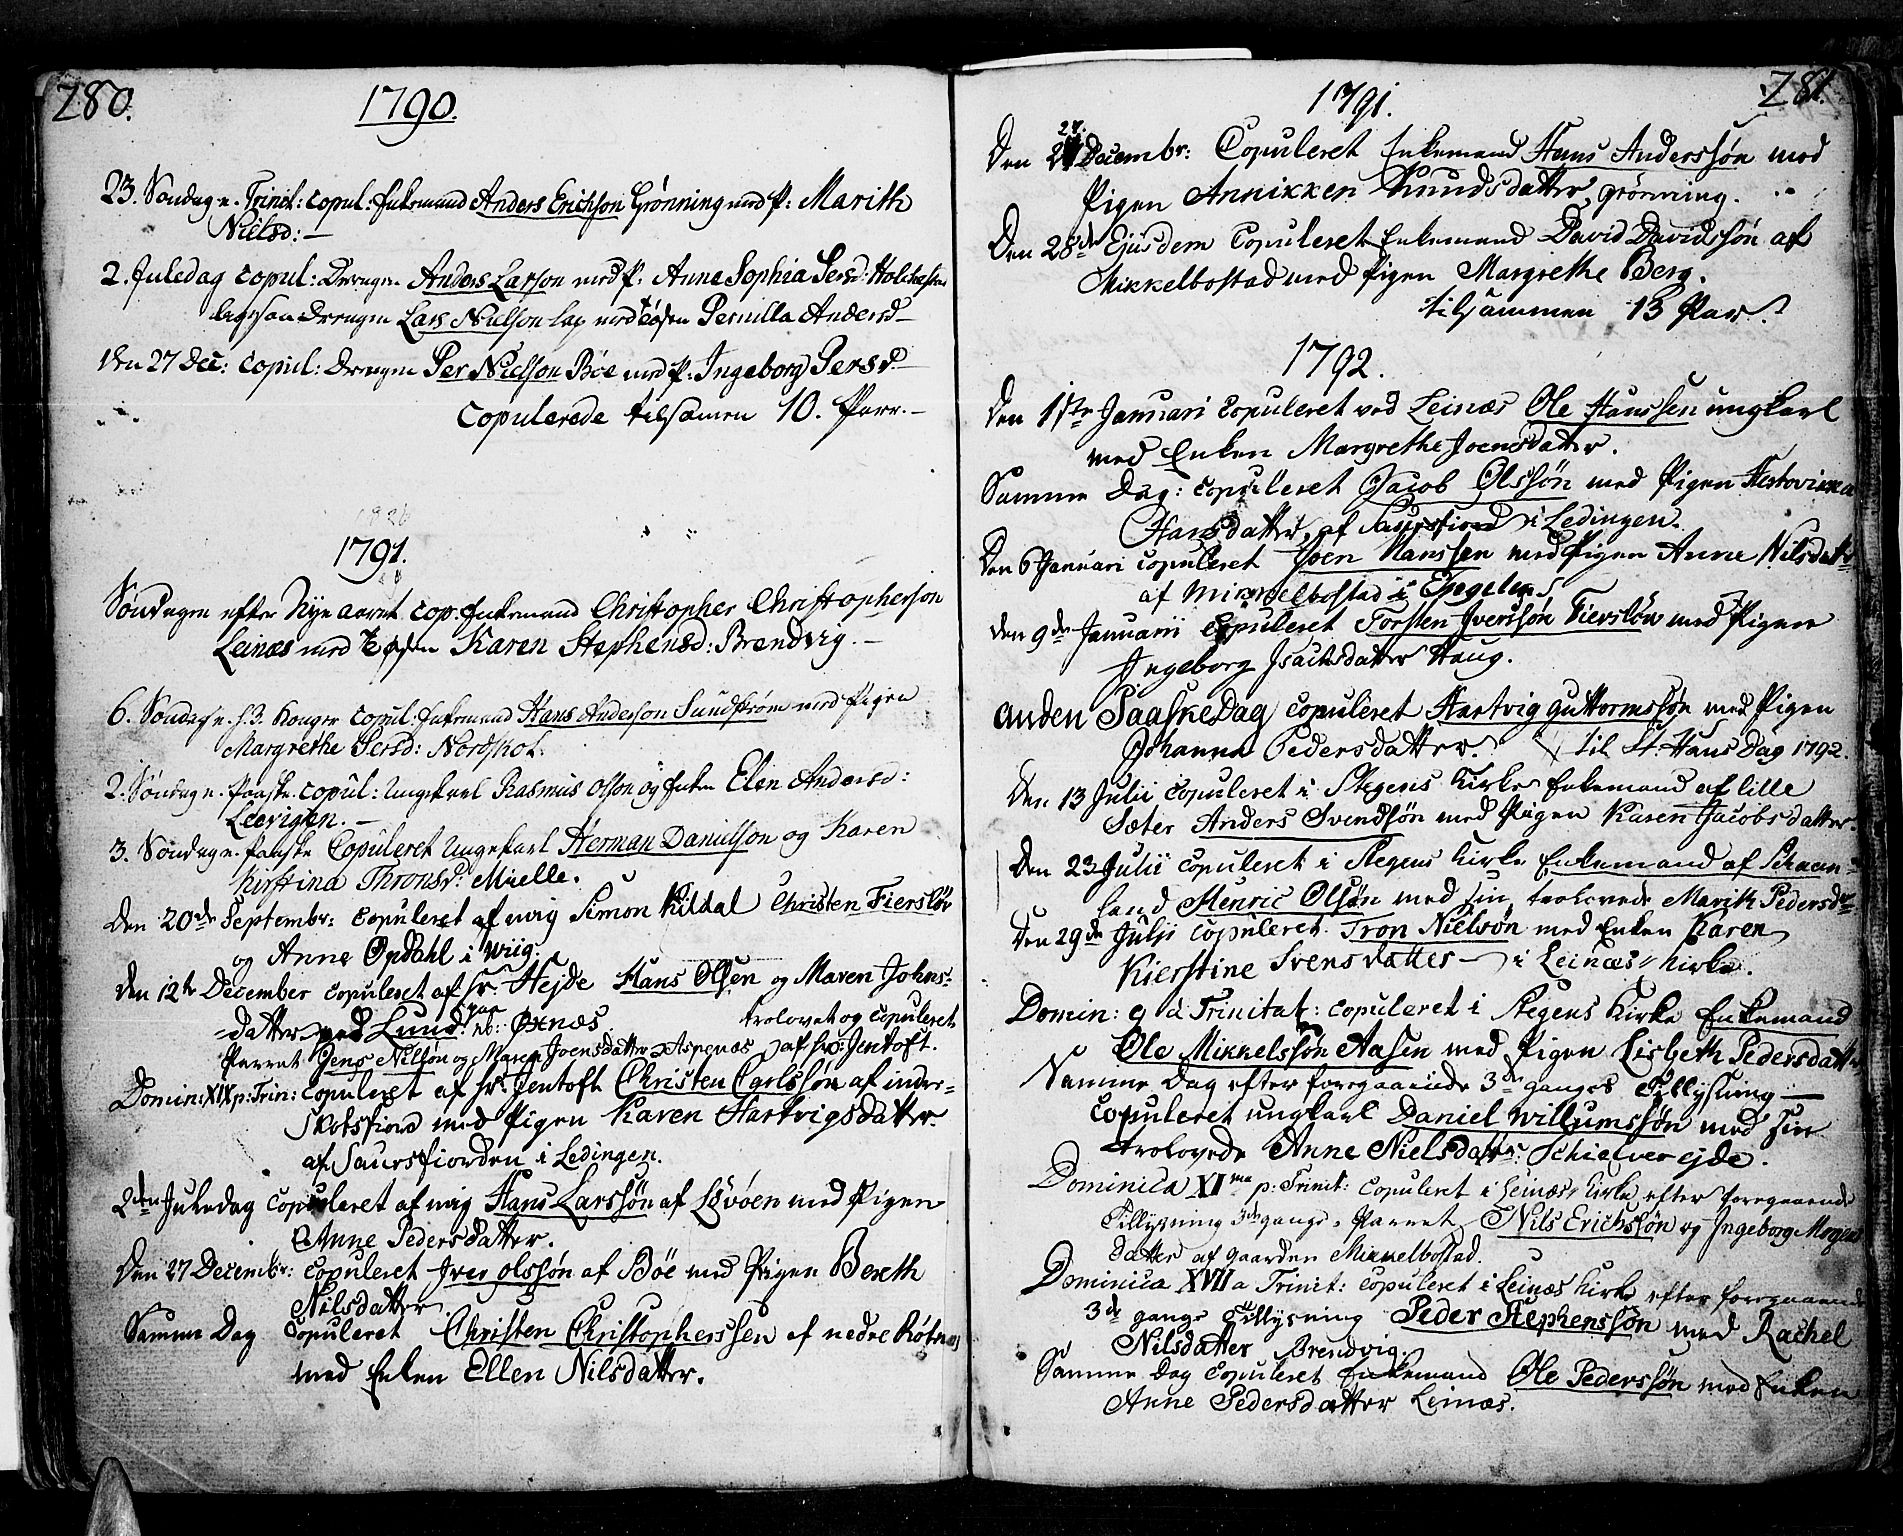 280.
1790.
23. Søndag e. Trinit: copul: Enkemand Anders Erichson Grønning med P: Marith
Nielsd: —
2. Juledag copul: Drengen Anders Larson med P: Anne Sophia Persd: Holchesen
ligesaa Drengen Lars Nielson Lap med Tøsen Pernilla Andersd —
Den 27 Dec: copul: Drengen Per Nielson Bøe med P: Ingeborg Persd —
Copulerede tilsamen 10. Parr. —
1791.
Søndagen efter Nye aaret cop. Enkemand Christopher Christopherson
Leinæs med Tøsen Karen Stephensd: Brendvig. —
6. Søndag e. H. 3. Konger copul: Enkemand Hans Anderson Sundstrøm med Pigen
Margrethe Persd: Nordskot.
2. Søndag e. Paaske copul: Ungekarl Rasmus Olson og Enken Elen Andersd:
Leervigen. —
3. Søndag e. Paaske Copuleret Ungekarl Herman Danielson og Karen
Kirstina Thronsd: Mielle.
Den 20de Septembr: copuleret af mig Simon Kildal Christen Fierslöv
og Anne Opdahl i Wiig.
Den 12te December copuleret af Hr: Hejde Hans Olsen og Maren Johns-
datter ved Lund. nb: Øxnæs. trolovet og copuleret
Parret Jens Nilsøn og Maren Joensdatter Aspenæs af Hr: Jentoft.
Domin: XIX p: Trin: copuleret af Hr: Jentoft Christen Carlssøn af inder-
Skotsfiord med Pigen Karen Hartvigsdatter
af Saursfiorden i Ledingen.
2den Juledag copuleret af mig Hans Larssøn af Løvøen med Pigen
Anne Pedersdatter.
Den 27 Decembr: copuleret Iver Olssøn af Bøe med Pigen Bereth
Nilsdatter.
Samme Dag copuleret Christen Christopherssen af nedre Røtnæs
med Enken Ellen Nilsdatter.
281.
1791.
27.
Den 2 Decembr: Copuleret Enkemand Hans Anderssøn med
Pigen Annikken Knudsdatter, Grønning.
Den 28de Ejusdem Copuleret Enkemand David Davidssøn af
Mikkelbostad med Pigen Margrethe Berg.
tilsammen 13 Par.
1792.
Den 1ste Januari copuleret ved Leinæs Ole Hanssen ungkarl
med Enken Margrethe Joensdatter.
Samme Dag: copuleret Jacob Olssøn med Pigen
Hansdatter, af Saursfiord i Ledingen.
Den 6 Januari copuleret Joen Hanssen med Pigen Anne Nilsdatter
af Mikkelbostad i Engeløen.
Den 9de Januarii copuleret Torsten Iverssøn Fierslöv med Pigen
Ingeborg Isachsdatter Haug.
anden Paaske Dag copuleret Hartvig Guttormssøn med Pigen
Johanna Pedersdatter. til St. Hans Dag 1792.
Den 13 Julii copuleret i Stegens Kirke Enkemand af lille
Sæter Anders Svendsøn med Pigen Karen Jacobsdatter.
Den 23 Julii copuleret i Stegens Kirke Enkemand af Schaan-
land Henric Olsøn med sin trolovede Marith Pedersdr
Den 29de Julii copuleret Tron Nielsøn med Enken Karen
Kierstine Svensdatter — i Leinæs Kirke.
Domin: 9 a Trinitat: copuleret i Stegens Kirke Enkemand
Ole Mikkelssøn Aasen med Pigen Lisbeth Pedersdatter
Samme Dag efter foregaaende 3de ganges Tillysning —
Copuleret ungkarl Daniel Willumssøn med sin
trolovede Anne Nielsdatter Schielver ejde.
Dominica XIma p: Trinit: copuleret i Leinæs Kirke efter foregaaende
Tillysning 3de gange, Parret Nils Erichssøn og Ingeborg Mogens
datter af gaarden Mikkelbostad.
Dominica XVII a Trinit: copuleret i Leinæs Kirke efter foregaaende
3de gange Tillysning Peder Stephenssøn med Rachel
Nilsdatter Brendvig.
Samme Dag copuleret Enkemand Ole Pederssøn med Enken
Anne Pedersdatter Leinæs.